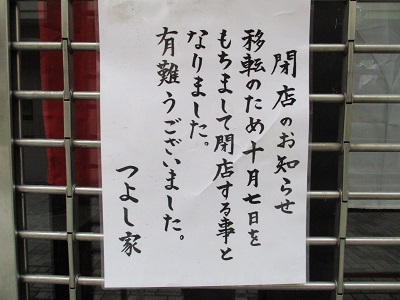 閉店のお知らせ
移転のため十月七日を
もちまして閉店する事と
なりました。
有難うございました。
つよし家